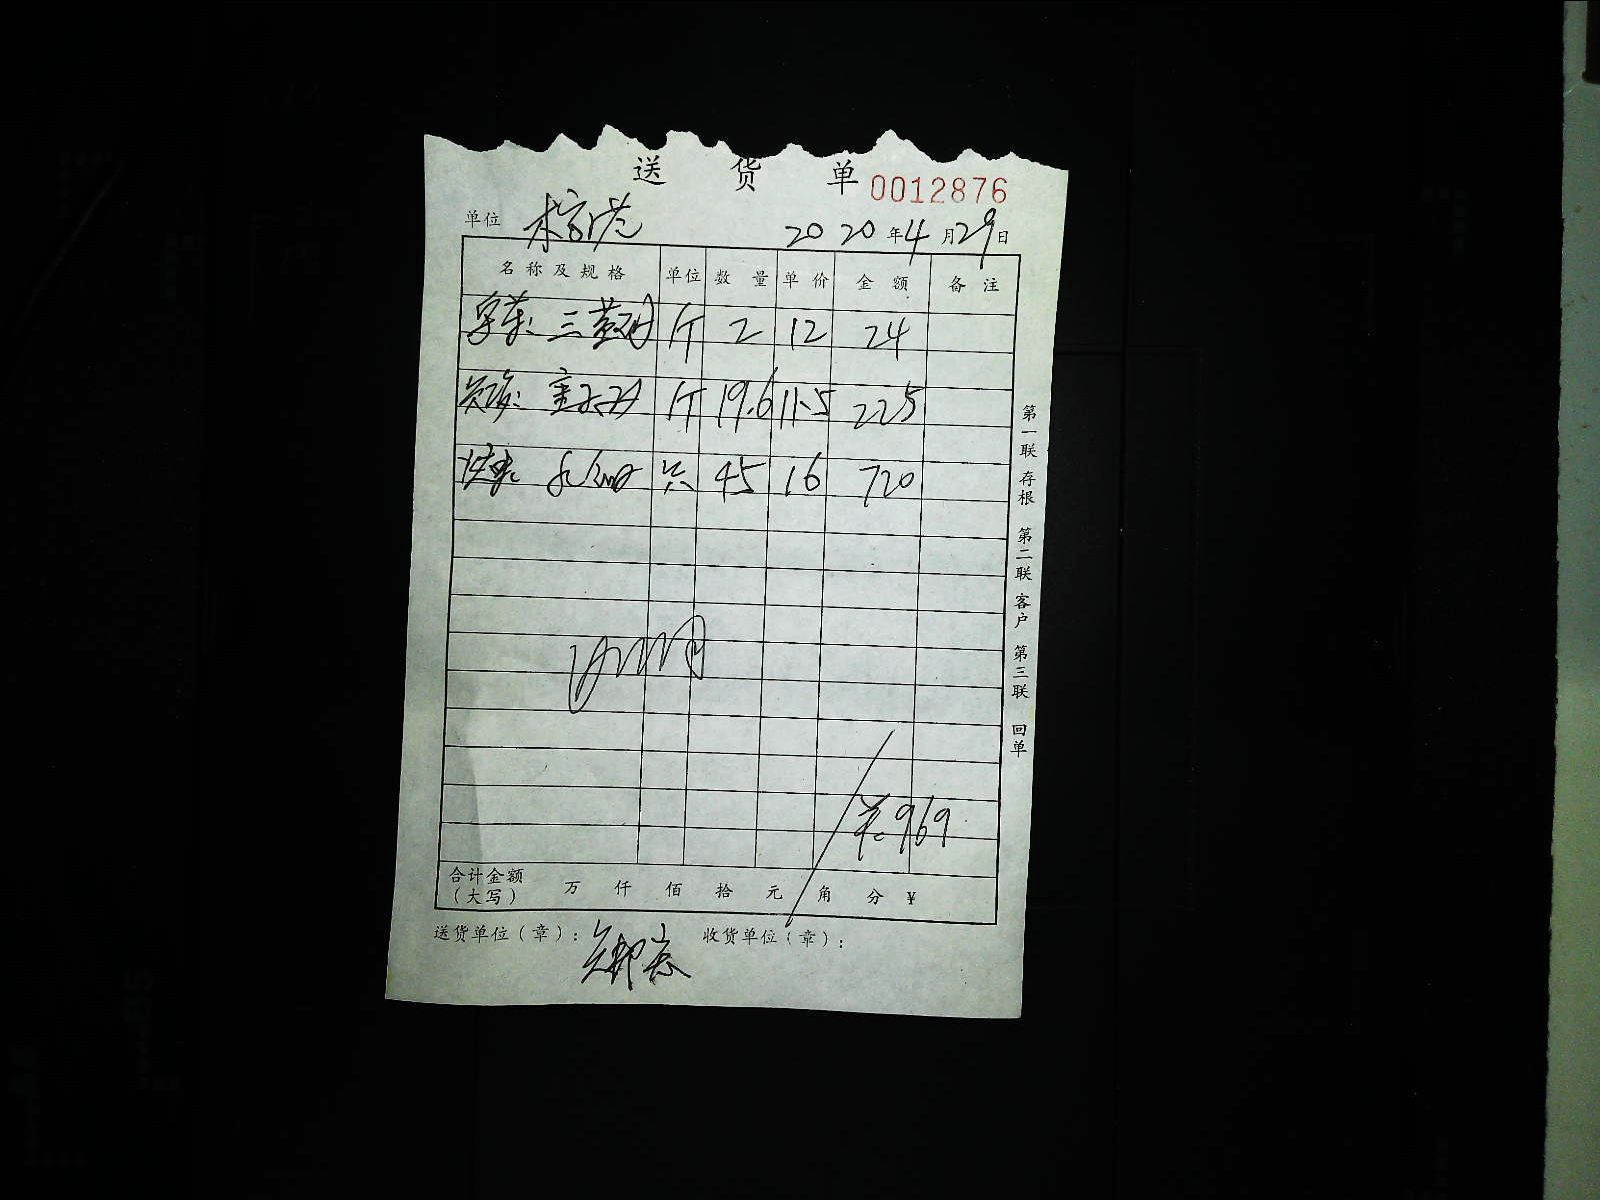 送 货 单 0012876
单位 2020年4月29日
名称及规格 单位 数量 单价 金额 备注
三黄 斤 2 12 24
斤 19.6 11.5 225
45 16 720
¥:969
合计金额(大写) 万 仟 佰 拾 元 角 分 ¥
送货单位(章): 收货单位(章):
第一联 存根 第二联 客户 第三联 回单